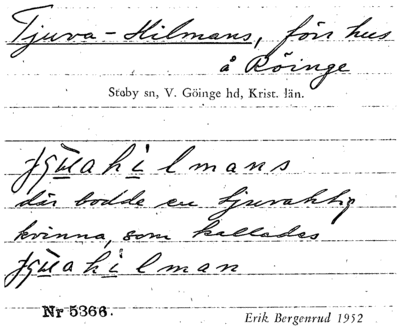 Tjuva-Hilmans, förr hus
å Röinge
Stoby sn, V. Göinge hd, Krist. län.
där bodde en tjuvaktig
kvinna, som kallades
Nr 5366.
Erik Bergenrud 1952